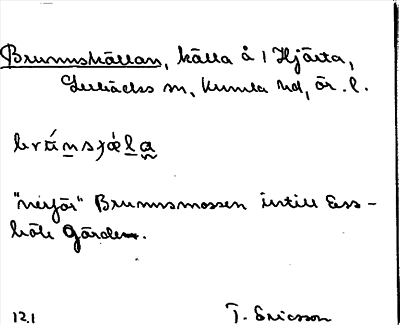 Brunnskällan, källa å 1 Hjärta,
Lerbäcks sn, Kumla hd, Ör. l.
"nerför" Brunnsmossen intill Ess-
böle Gärden.
121
T. Ericsson